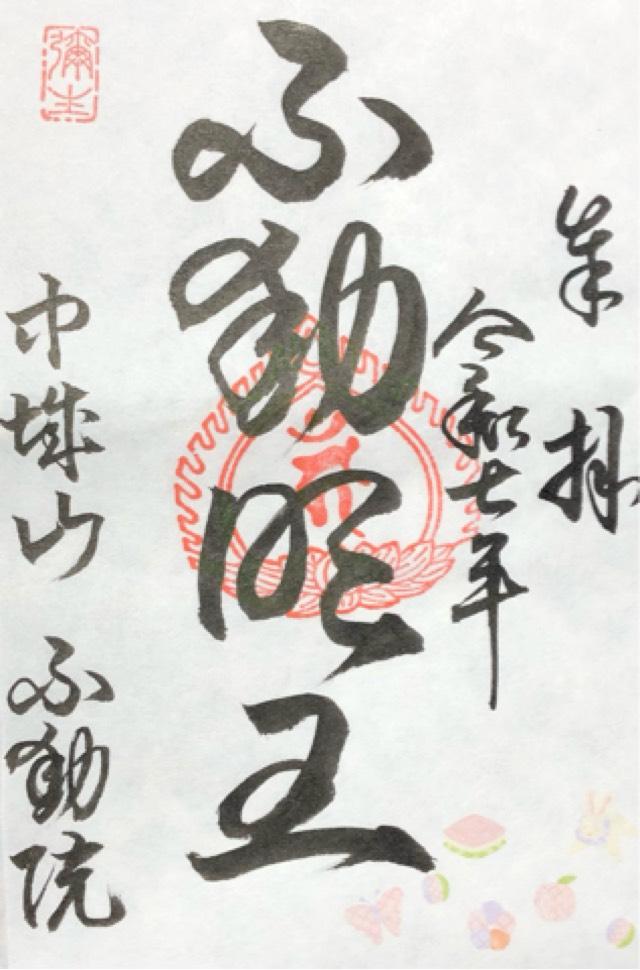 奉拝
令和七年
不動明王
巾城山 不動院